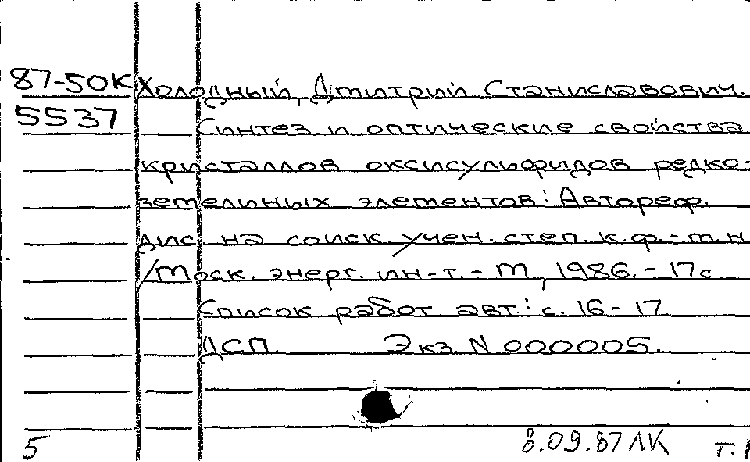 87-50К Холодный, Дмитрий Станиславович.
5537 Синтез и оптические свойства
кристаллов оксисульфидов редко-
земельных элементов: Автореф.
дис. на соиск. учен. степ. к.ф.-м.н
/Моск. энерг. ин-т. - М, 1986. - 17с
Список работ авт.: с. 16-17
ДСП Экз N 000005.
5 8.09.87 ЛК т.